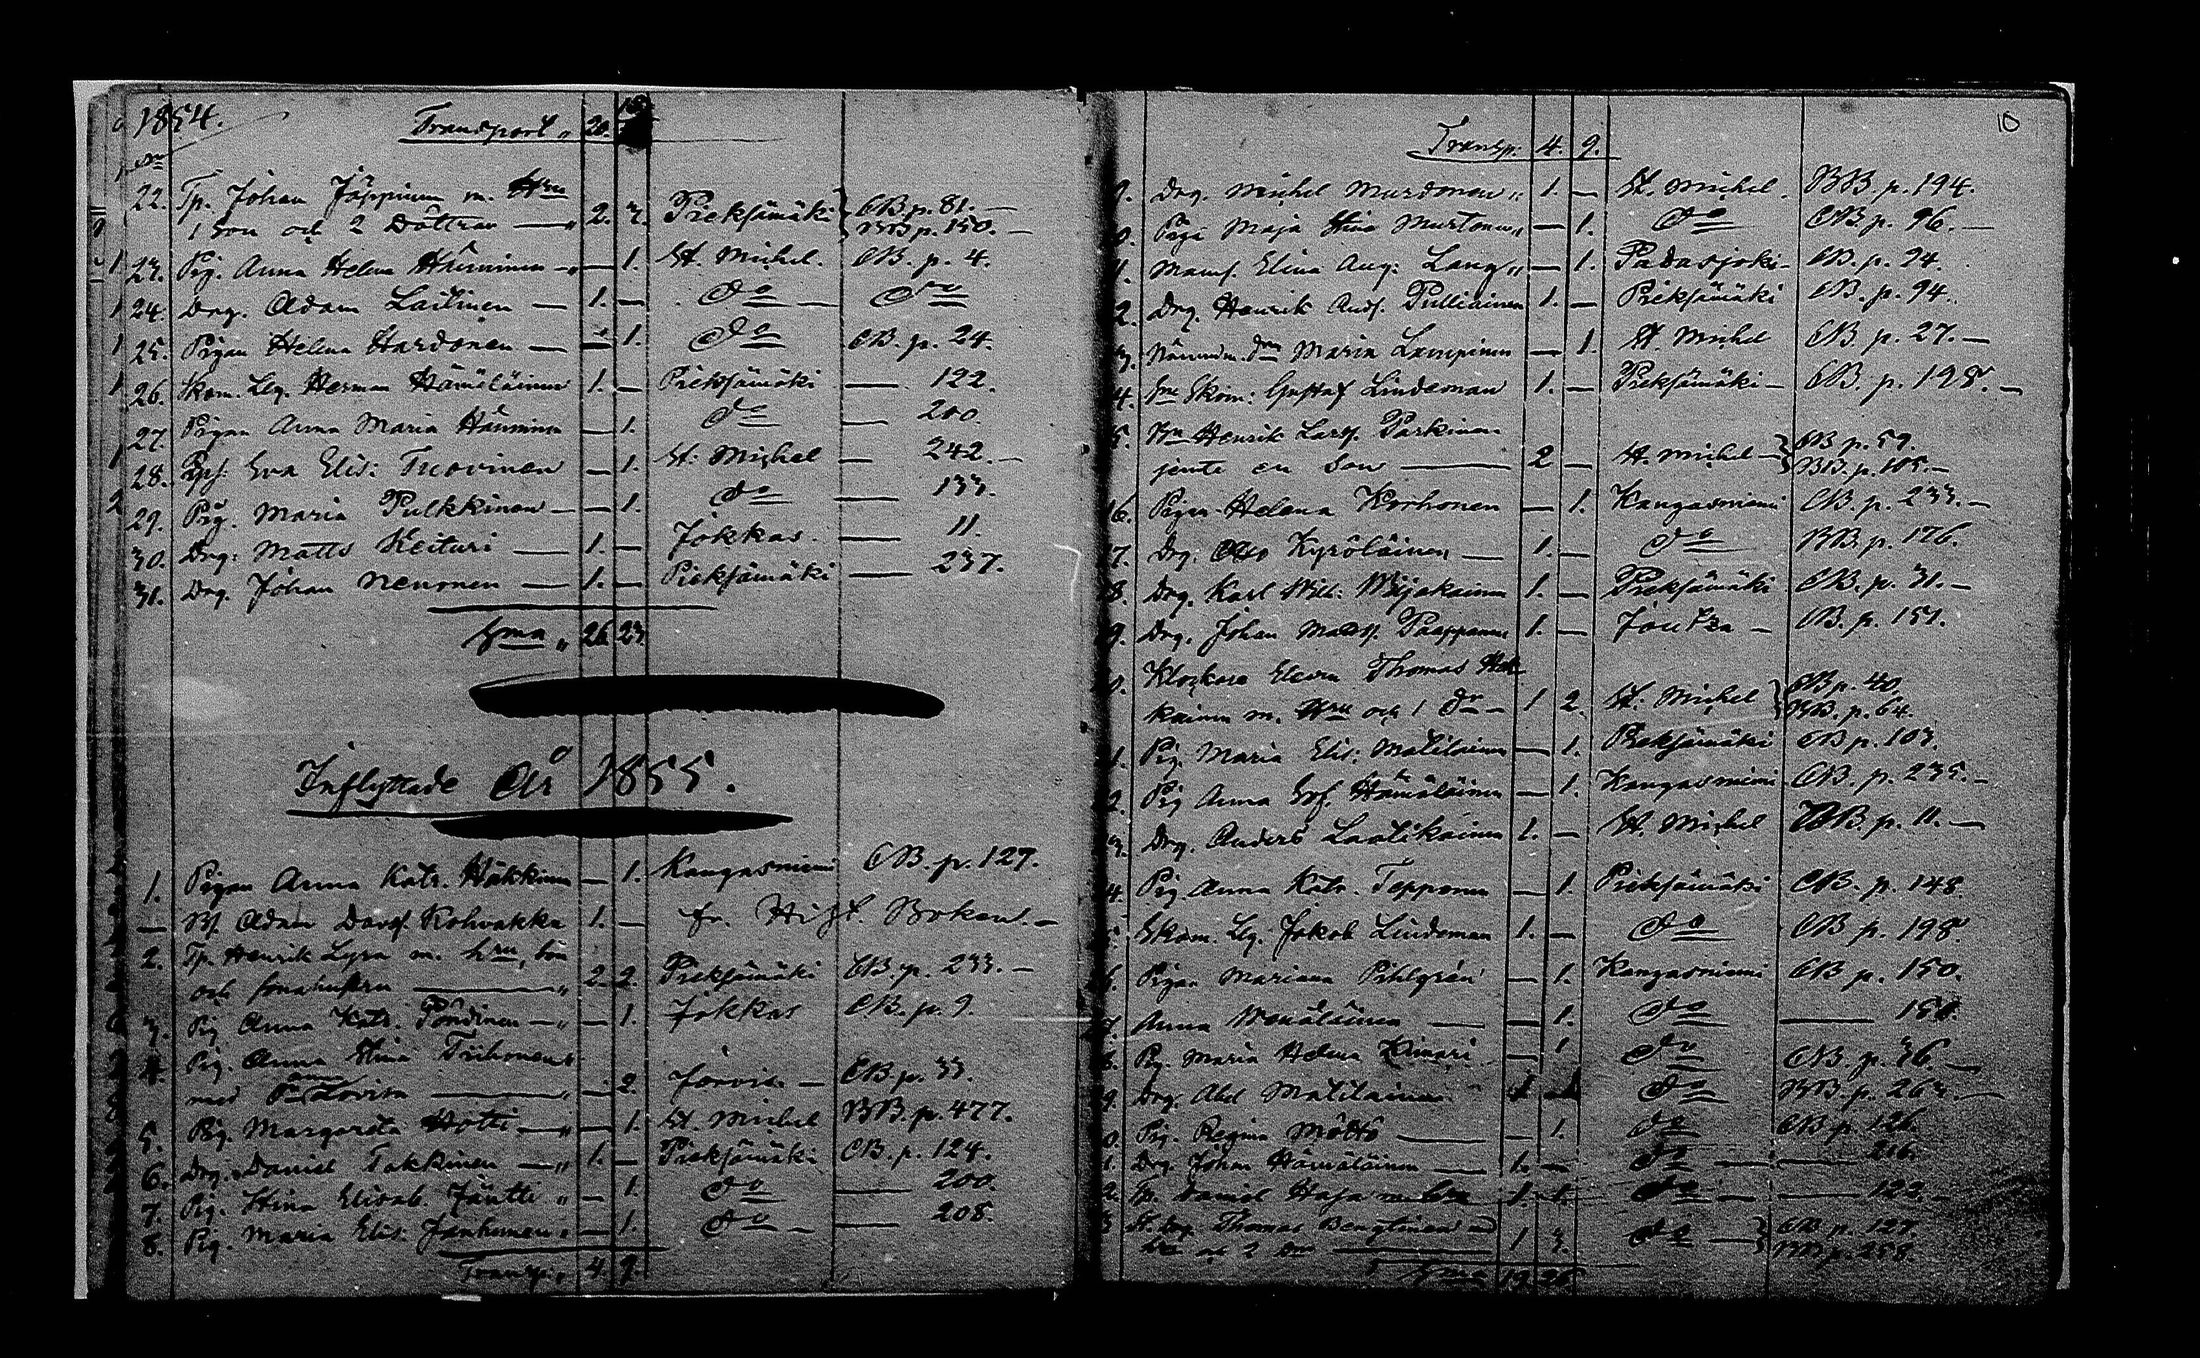 1854.
Transport „ 20.
No
22. Tp. Johan Jäppinen m. Hru
1 son och 2 Döttrar — 2. 3. Pieksämäki CB. p. 81. —
BB p. 150. —
23. Pig. Anna Helena Hänninen — — 1. St. Michel. CB. p. 4.
24. Drg. Adam Laitinen — 1. — Do — Do
25. Pigan Helena Hardonen — — 1. Do CB. p. 24.
26. Skom. Lg. Herman Hämäläinen 1. — Pieksämäki — 122.
27. Pigan Anna Maria Hänninen — 1. Do — 200.
28. Eva Elis: Tuovinen — 1. St. Michel — 242. —
29. Pig. Maria Pulkkinen — — 1. Do — 133.
30. Drg: Matts Keituri — 1. — Jokkas. — 11.
31. Drg. Johan Nenonen — 1. — Pieksämäki — 237.
Sma „ 26 23.
Inflyttade År 1855.
1. Pigan Anna Katr. Häkkinen — 1. Kangasniemi CB. p. 127.
— Adam Davs. Kohvakka 1. — fr.
2. Tp. Henrik Lyra m. hru, son
och sonahustru — „ 2. 2. Pieksämäki CB. p. 233. —
3. Pig Anna Katr. Pöndinen — „ — 1. Jokkas CB. p. 9.
4. Pig. Anna Stina Tiihonen
med Lovisa — „ — 2. Jorvis — CB. p. 33.
5. Pig. Margareta Hotti — „ — 1. St. Michel BB. p. 477.
6. Drg. Daniel Takkinen — „ 1. — Pieksämäki CB. p. 124.
7. Pig. Stina Elisab. Jäntti „ — 1. Do — 200.
8. Pig. Maria Elis. Janhunen „ — 1. Do — — 208.
Transp. „ 4. 9.
10
Transp. 4. 9.
9. Drg. Michel Murdonen „ 1. — St. Michel. BB. p. 194.
Piga Maja Stina Murtonen „ — 1. Do CB. p. 96. —
Mams. Elina Aug: Lang „ — 1. Padasjoki — CB. p. 24.
2. Drg. Henrik Ands. Pulliainen 1. — Pieksämäki CB. p. 94.
3. Maria Lampinen — 1. St. Michel CB. p. 27. —
4. Skom: Gustaf Lindeman 1. — Pieksämäki — CB. p. 198. —
5. Bn Henrik Larss. Parkinen
jemte en Son — 2 — St. Michel — CB p. 59.
BB. p. 105. —
16. Pigan Helena Korhonen — 1. Kangasniemi CB. p. 233. —
7. Drg: Otto Kyröläinen — 1. — Do BB. p. 176.
8. Drg. Karl Wilh: Wijakainen 1. — Pieksämäki CB. p. 31. —
9. Drg. Johan Matss. Paappanen 1. — Joutza — CB. p. 151.
Klockare Eleven Thomas Hok-
kainen m. Hru och 1 dr — 1 2. St. Michel CB p. 40.
BB. p. 64.
1. Pig. Maria Elis: Matilainen — 1. Pieksämäki CB p. 103.
2. Pig Anna Hämäläinen — 1. Kangasniemi CB. p. 235. —
3. Drg. Anders Laatikainen 1. — St. Michel BB. p. 11. —
4. Pig. Anna Katr. Tepponen — 1. Pieksämäki CB. p. 148.
Skom. Lg. Jakob Lindeman 1. — Do CB p. 198.
6. Pigan Mariana Pihlgrén — 1. Kangasniemi CB p. 150.
7. Anna Wenäläinen — — 1. Do — 150.
8. Pig. Maria Helena Kinari — 1 Do CB. p. 36. —
9. Drg. Abel Matilainen 1 — Do BB. p. 263. —
Pig. Regina Möttö — — 1. Do CB p. 126
1. Drg. Johan Hämäläinen — 1. — Do — — 216.
2. Tp. Daniel Haja m. 1. 1. Do — — 122. —
3 Thomas Bengtinen
1 3. Do — CB p. 127
BB p. 258.
Sma 19 26